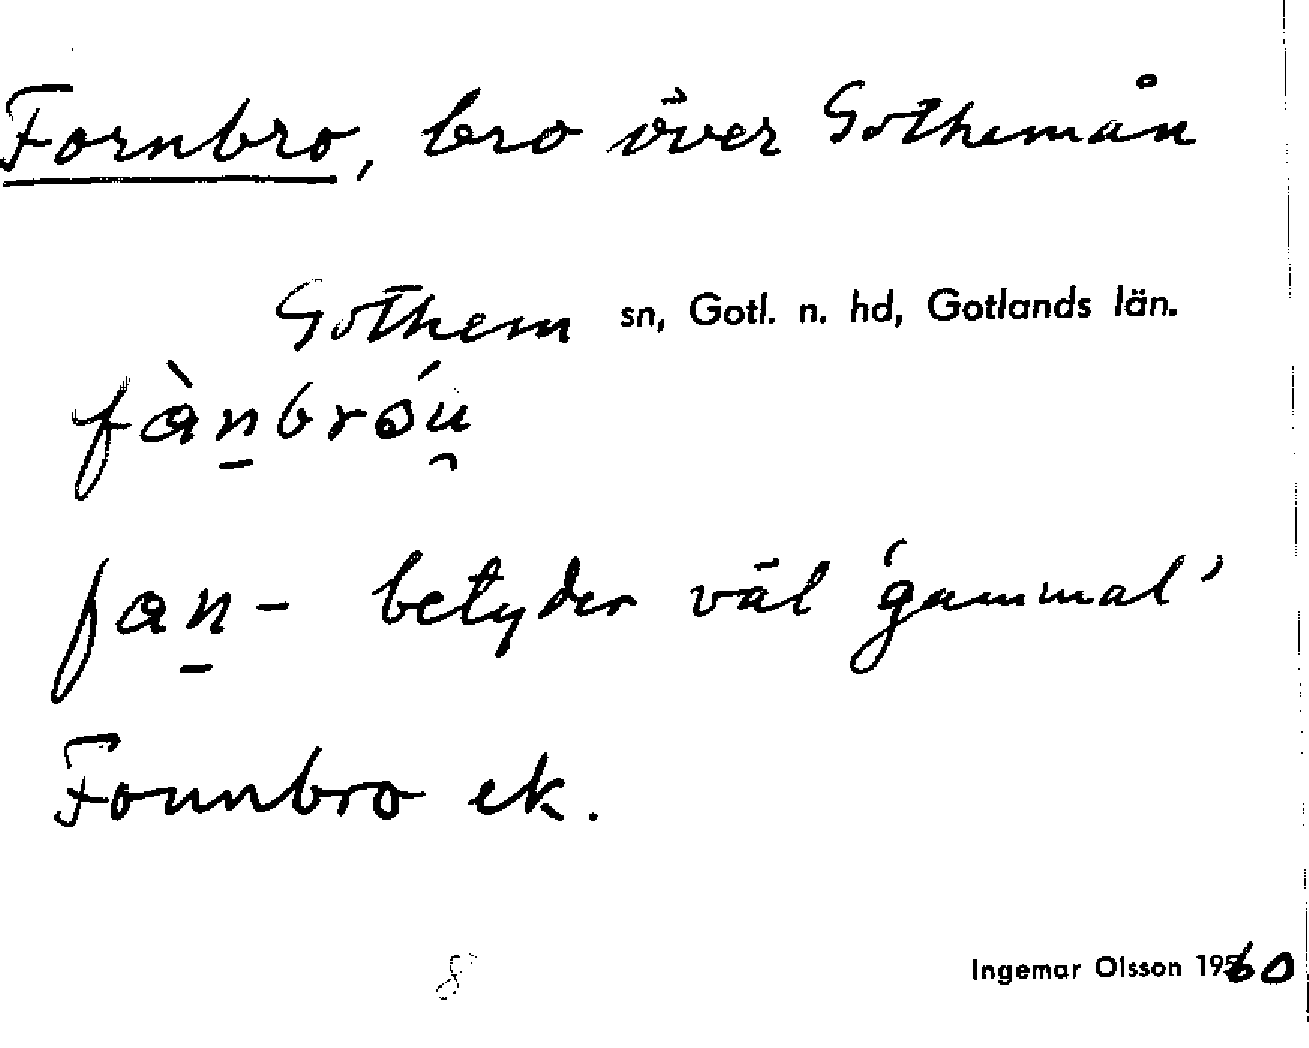 Fornbro, bro över Gothemån
Gothem sn, Gotl. n. hd, Gotlands län.
fàn̠bróu̯
fan̠- betyder väl 'gammal'
Founbro ek.
8
Ingemar Olsson 1960